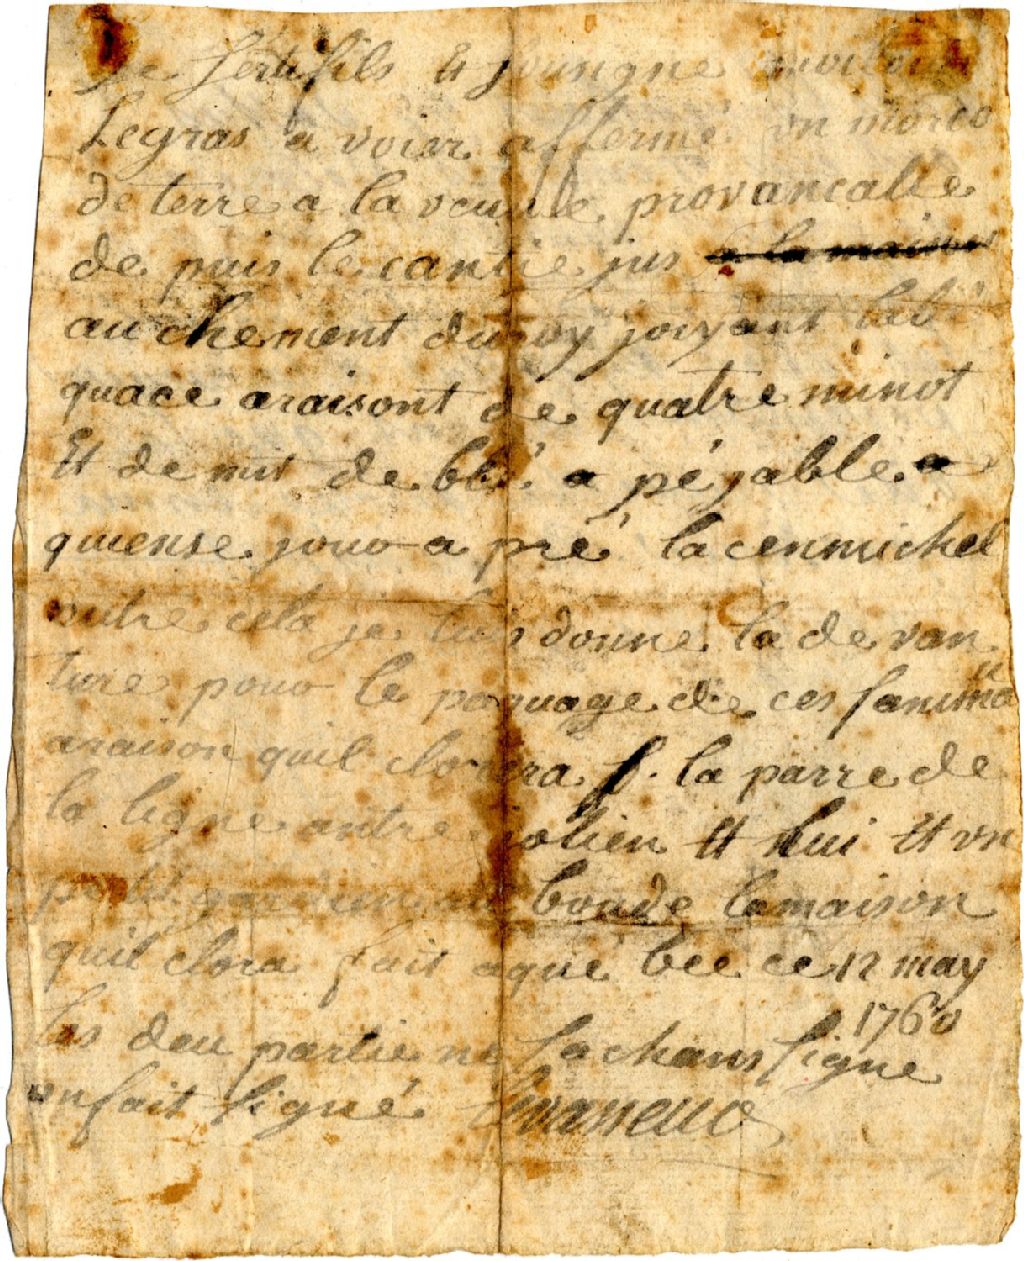 Je sertifils et sousigne
Legras a voier affermé un morco
de terre a la veuve provancalle
de puis le cantie jus
au chement du roy joiyant
quace araisont de quatre minot
et de mit de blé a péyable a
quiense jouo a pré la cenmichel
outre cela je luis donne la de van
ture pouo le paquage de ces sanimo
araison quil clorera f. la parre de
la ligne antre jolien et hui et un
petit gardien au bou de lamaison
quil clora fait aque bee ce 12 may
1760
les deu partie ne sachans signe
on fait signé